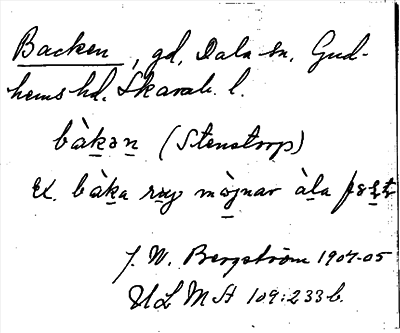 Backen, gd, Dala sn, Gud-
hems hd. Skarab. l.
bàkən (Stenstorp)
Ex. bàka mòjnar àla
J. W. Bergström 1904-05
ULMA 109:233 b.